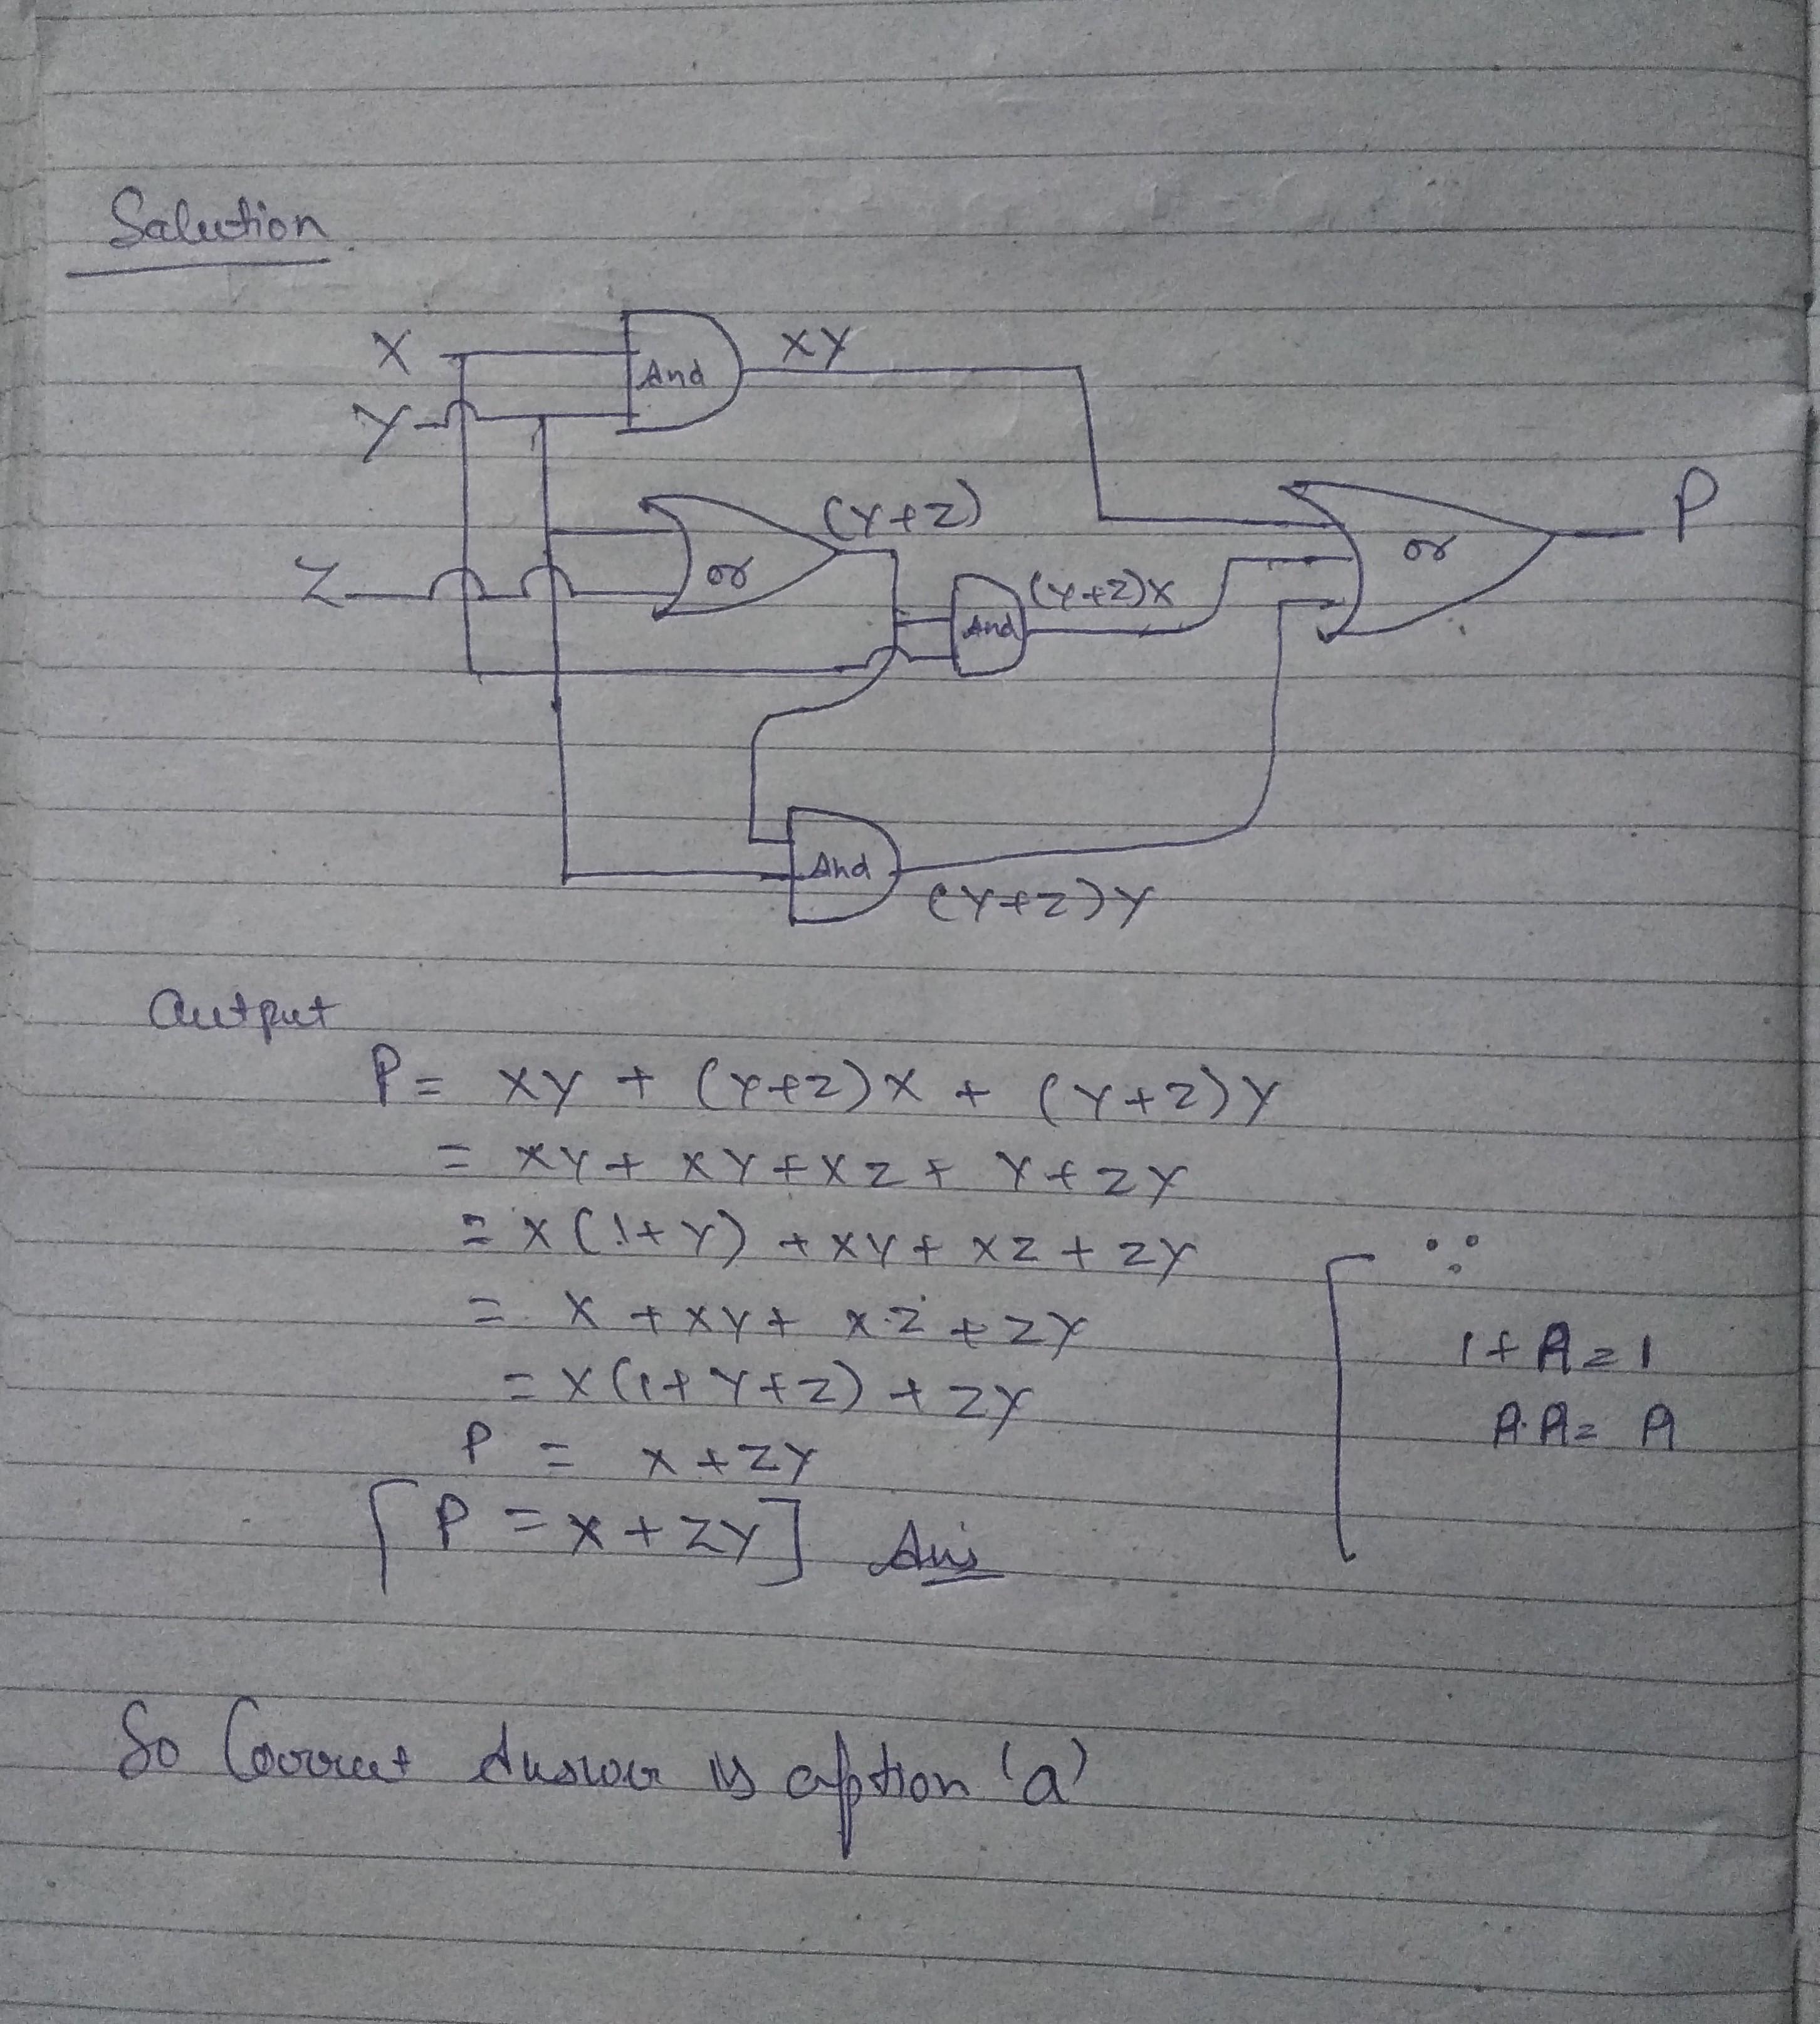 Salution
X
And
XY
Y
(Y+Z)
P
or
or
Z
(Y+Z)X
And
And
(Y+Z)Y
Output
P = XY + (Y+Z)X + (Y+Z)Y
= XY + XY + XZ + Y + ZY
= X(1+Y) + XY + XZ + ZY
∵
= X + XY + X.Z + ZY
1+A=1
= X(1+Y+Z) + ZY
A.A= A
P = X+ZY
[P = X+ZY] Ans
So Correct Answer is option 'a'